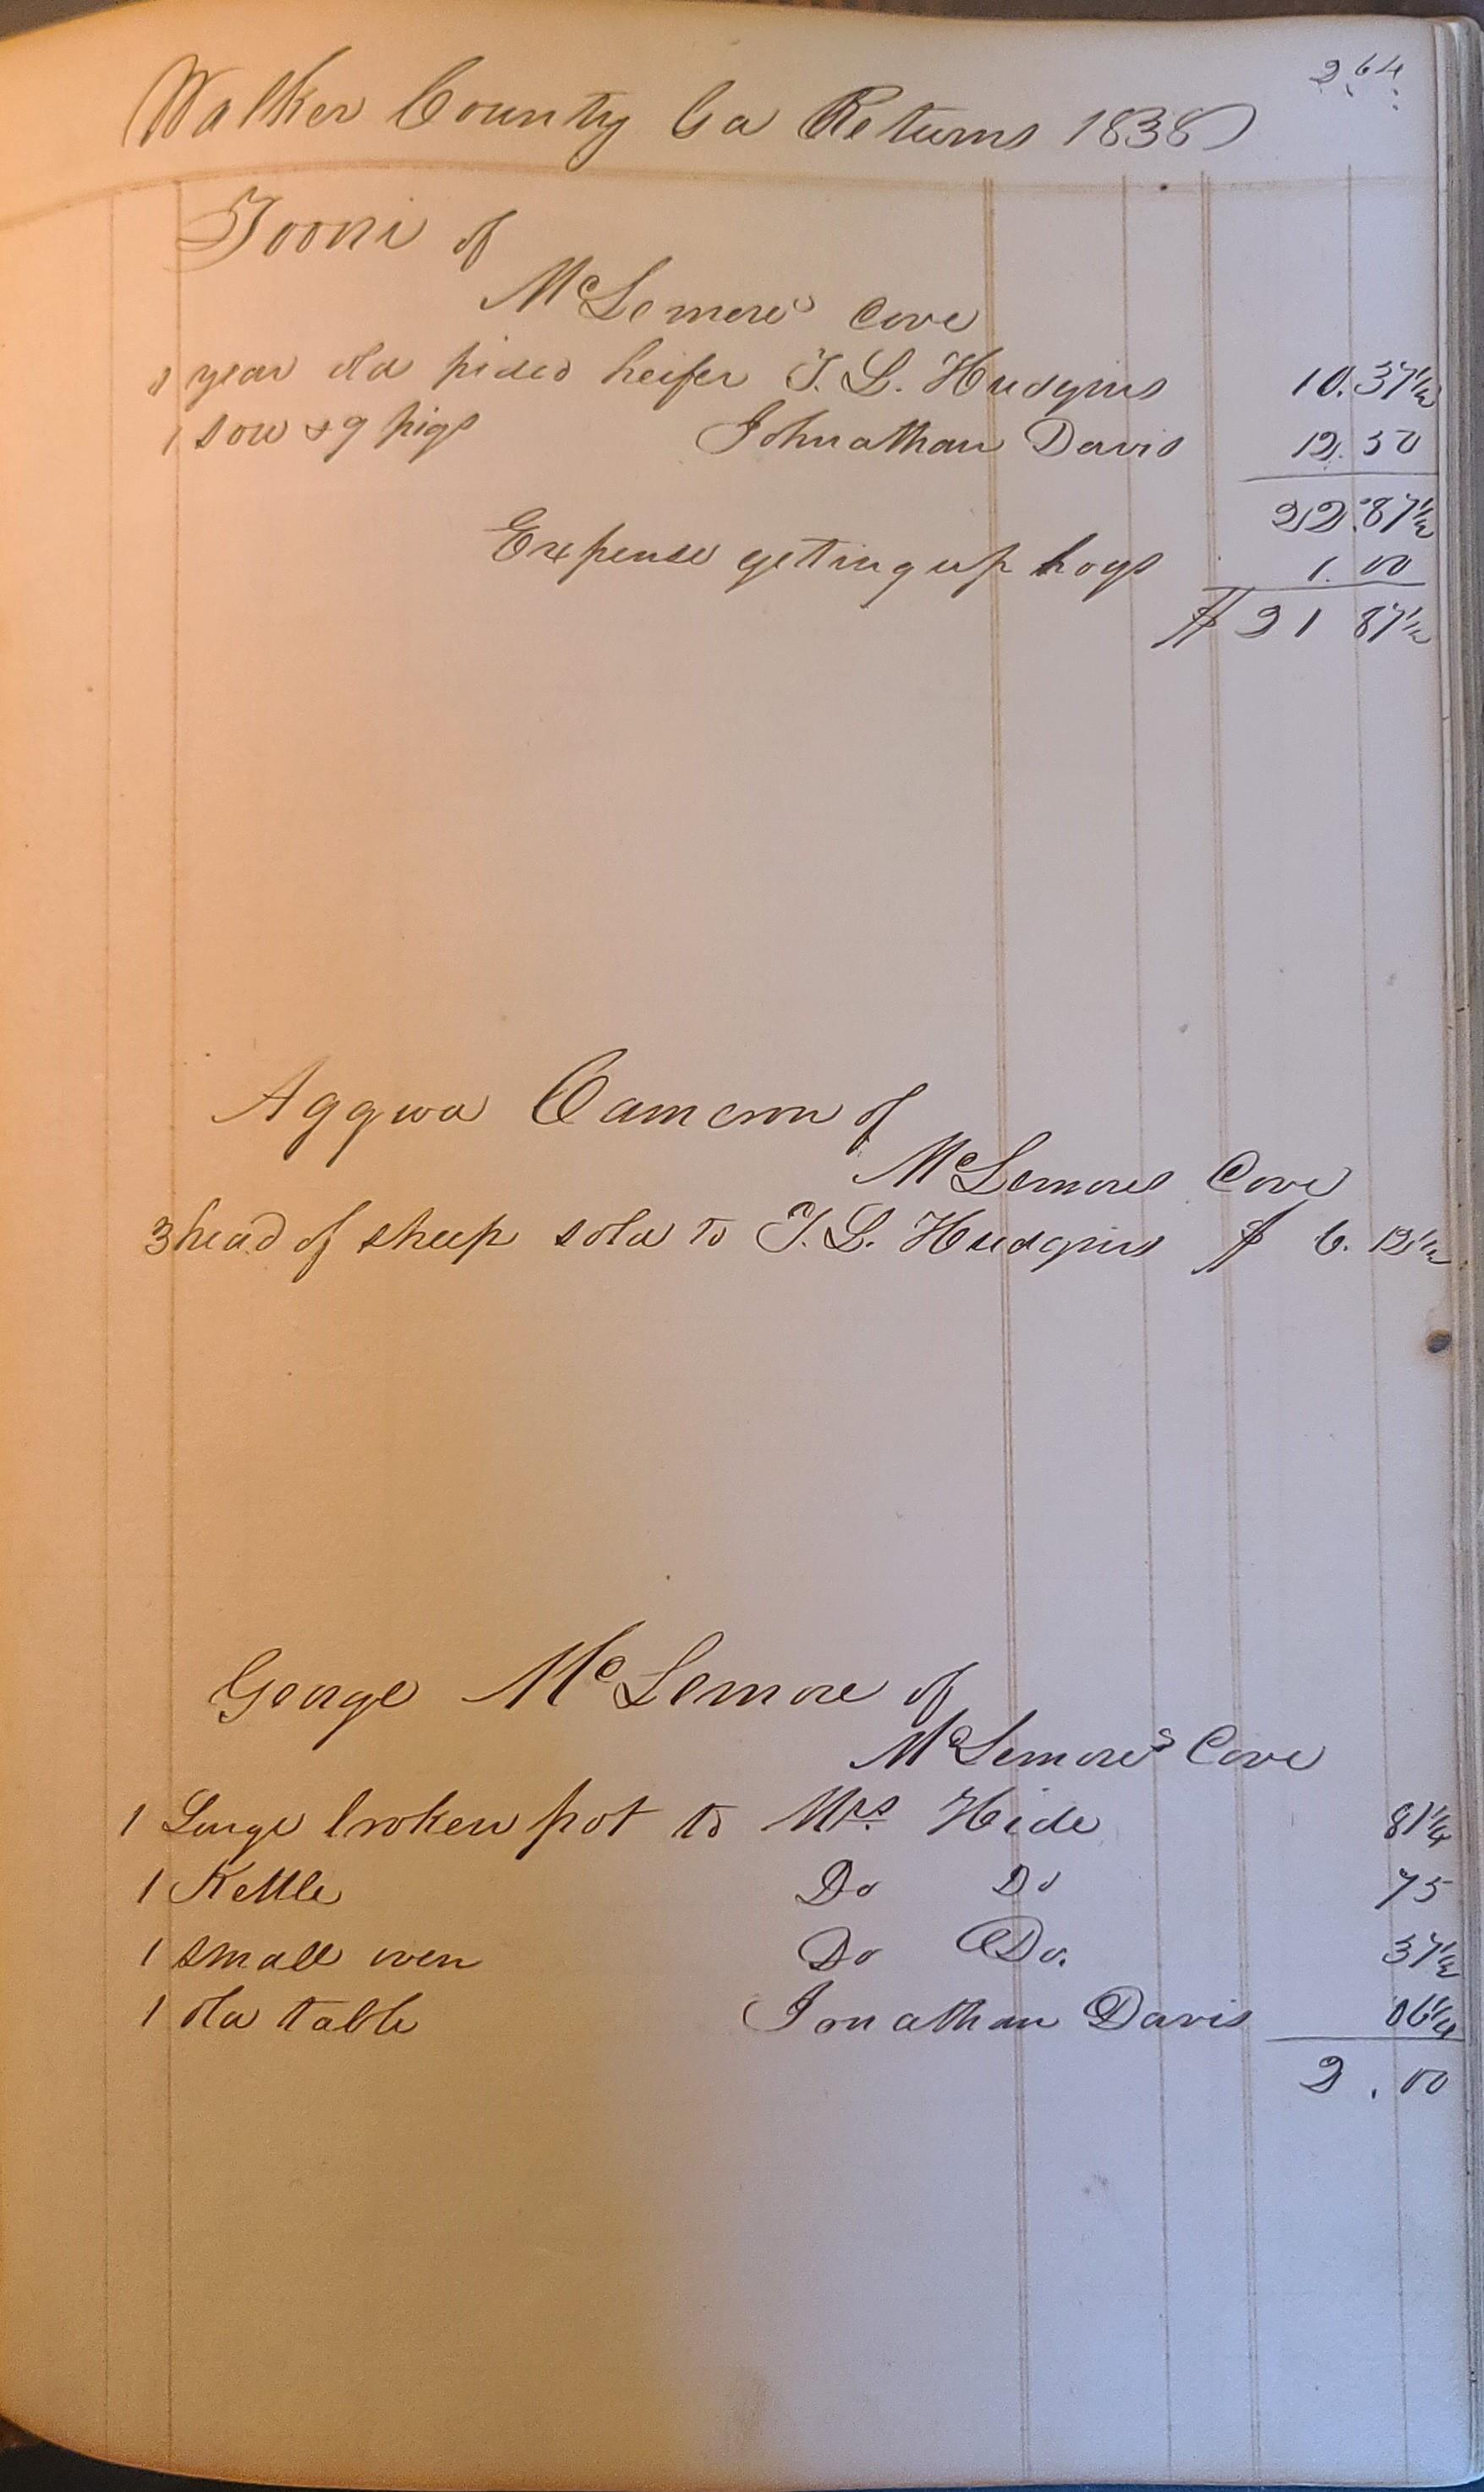 264
Walker County Ga Returns 1838
Tooni of
McLemores Cove
1 year old pided heifer T. L. Hudgins 10.37 1/2
1 sow & 9 pigs Johnathan Davis 12.50
22.87 1/2
Expense geting up hogs 1.00
$21 87 1/2
Aggwa Cameron of
McLemores Cove
3 head of sheep sold to T. L. Hudgins $ 6.12 1/2
George McLemore of
McLemore's Cove
1 Large broken pot to Mrs. Hide 81 1/4
1 Kettle Do Do 75
1 small oven Do Do. 37 1/2
1 old table Jonathan Davis 06 1/4
2.00